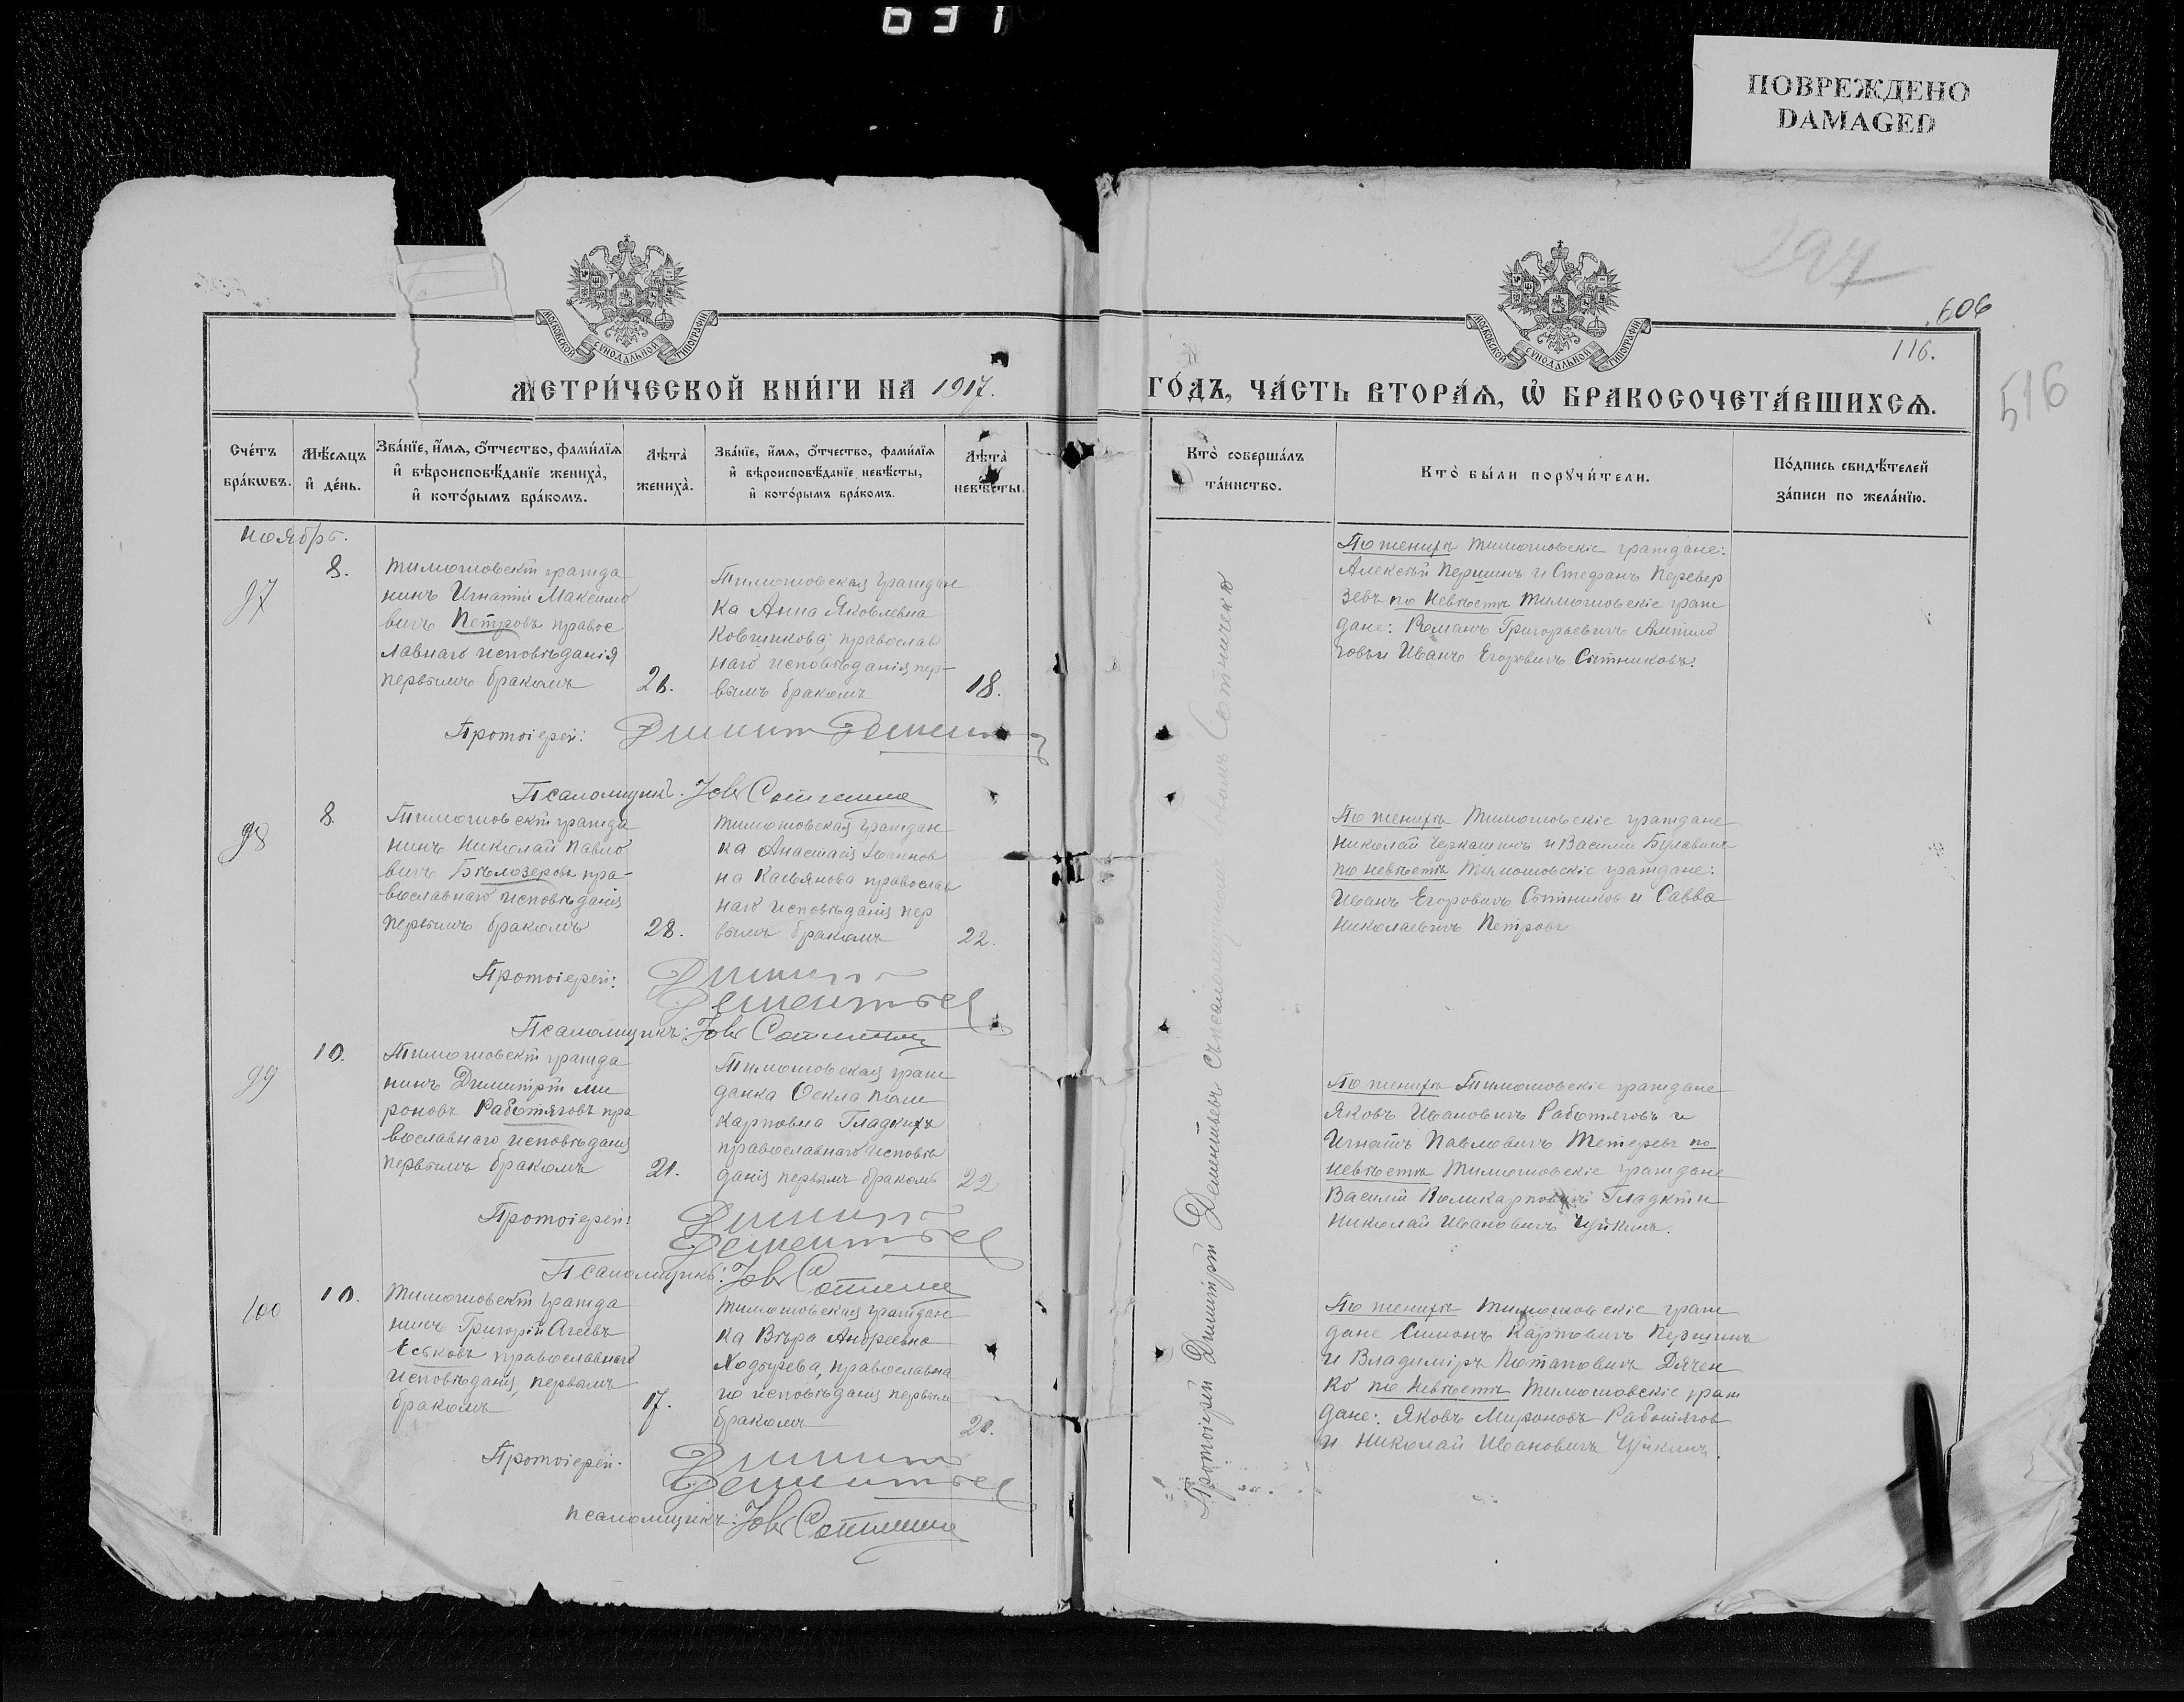 631
ПОВРЕЖДЕНО
DAMAGED
МОСКОВСКОЙ СУНОДАЛЬНОЙ ТИПОГРАФІИ
МОСКОВСКОЙ СУНОДАЛЬНОЙ ТИПОГРАФІИ
606
116.
516
МЕТРИ́ЧЕСКОЙ КНИ́ГИ НА 1917.
ГО́ДЪ, ЧА́СТЬ ВТОРА́Ѧ, Ѡ҆ БРАКОСОЧЕТА́ВШИХСѦ.
Сче́тъ бра́кѡвъ.
Мѣ́сяцъ и҆ де́нь.
Зва́нїе, и҆́мѧ, ѻ҆́тчество, фами́лїѧ
и҆ вѣроисповѣ́данїе жениха̀,
и҆ кото́рымъ бра́комъ.
Лѣ́та жениха̀.
Зва́нїе, и҆́мѧ, ѻ҆́тчество, фами́лїѧ
и҆ вѣроисповѣ́данїе невѣ́сты,
и҆ кото́рымъ бра́комъ.
Лѣ́та невѣ́сты.
Кто̀ соверша́лъ
та́инство.
Кто̀ бы́ли порꙋчи́тели.
По́дпись свидѣ́телей
за́писи по жела́нїю.
ноябрь.
97
8.
Тимошовскій гражда
нинъ Игнатій Максимо
вичъ Петровъ правос
лавнаго исповѣданія
первымъ бракомъ
21.
Тимошовская граждан
ка Анна Яковлевна
Ковшикова православ
наго исповѣданія пер-
вымъ бракомъ
18.
По женихѣ Тимошовскіе граждане:
Алексѣй Першинъ и Стефанъ Перевер
зевъ по невѣстѣ Тимошовскіе граж
дане: Романъ Григорьевичъ
Иванъ Егоровичъ Сѣтниковъ.
Протоіерей: Димитрій Дементьев
Псаломщикъ. Іовъ
98
8.
Тимошовскій гражда
нинъ Николай Павло
вичъ Бѣлозеровъ пра-
вославнаго исповѣданія
первымъ бракомъ
28.
Тимошовская граждан
ка Анастасія Іоаннов
на Касьянова православ
наго исповѣданія пер
вымъ бракомъ
22.
По женихѣ Тимошовскіе граждане
Николай Черкашинъ и Василій Булавинъ
по невѣстѣ Тимошовскіе граждане:
Иванъ Егоровичъ Сѣтников и Савва
Николаевичъ Петровъ
Протоіерей: Димитрій
Дементьев
Псаломщикъ: Іовъ
99
10.
Тимошовскій гражда
нинъ Димитрій Ми
роновъ Работяговъ пра
вославнаго исповѣданія
первымъ бракомъ
21.
Тимошовская граж
данка Ѳекла Поли
карповна Гладкихъ
православнаго исповѣ
данія первымъ бракомъ
22
По женихѣ Тимошовскіе граждане
Яковъ Ивановичъ Работяговъ и
Игнатъ Павловичъ Тетеревъ по
невѣстѣ Тимошовскіе граждане
Василій Поликарповичъ Гладкій и
Николай Ивановичъ Чуйкинъ.
Протоіерей: Димитрій
Дементьев
Псаломщикъ: Іовъ
100
10.
Тимошовскій гражда
нинъ Григорій Агѣевъ
Еськовъ православнаго
исповѣданія, первымъ
бракомъ
17.
Тимошовская граждан
ка Вѣра Андреевна
Ходырева, православна
го исповѣданія первым
бракомъ
20.
По женихѣ Тимошовскіе граж
дане Симонъ Карповичъ Першинъ
и Владиміръ Потаповичъ Дячен
ко по невѣстѣ Тимошовскіе граж
дане: Яковъ Мироновъ Работягов
и Николай Ивановичъ Чуйкинъ.
Протоіерей. Димитрій
Дементьев
псаломщикъ: Іовъ
Протоіерей Димитрій Дементьевъ съ псаломщикомъ